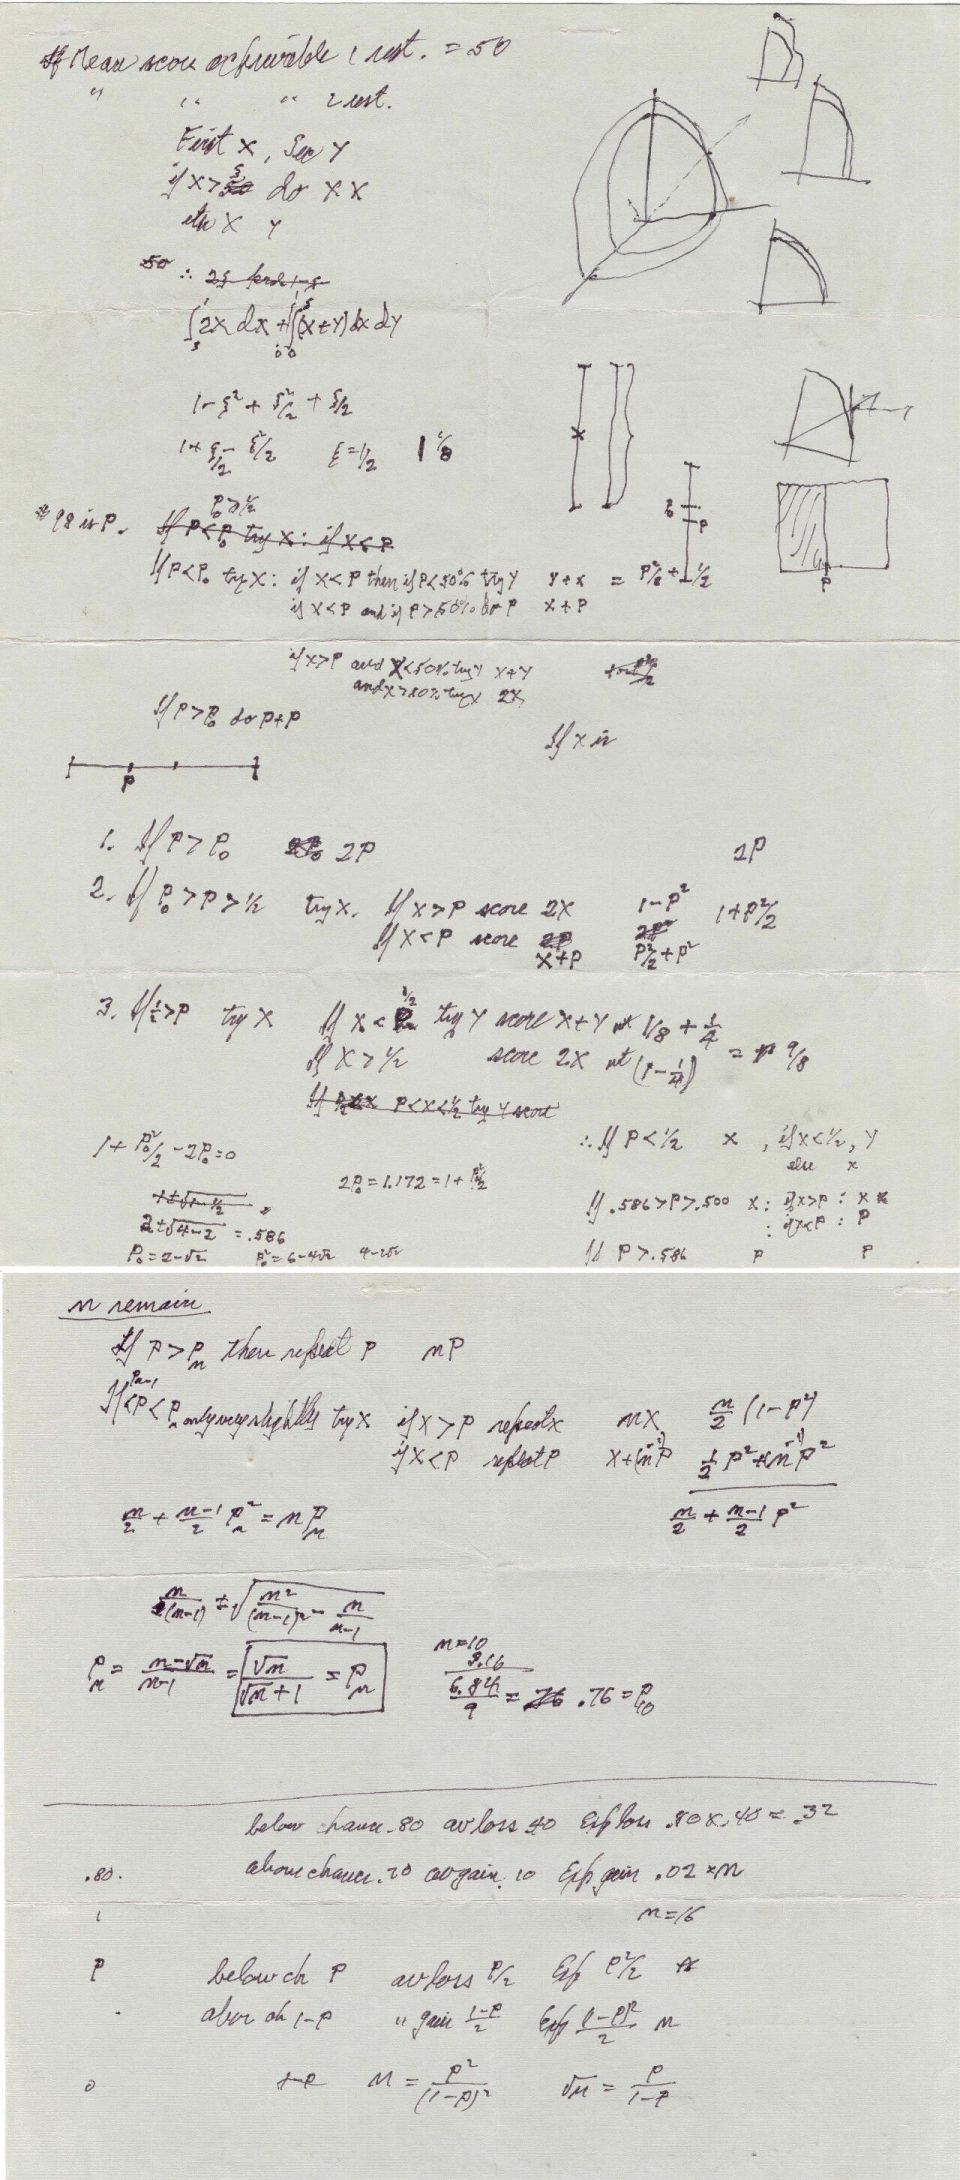 If Mean score achievable 1 rest. = 50
" " " 2 rest.
First X, Sec Y
if X > ξ do X X
eth X Y
50 ∴
∫ 2X dX + ∫∫ (X+Y) dX dY
1 - ξ² + ξ²/2 + ξ/2
1 + ξ/2 - ξ²/2 ξ = 1/2 1 1/8
P₀ > 1/2
#98 is P. If P < P₀ try X : if X < P
If P < P₀ try X : if X < P then if P < 50% try Y Y + X = P²/2 + 1/2
if X < P and if P > 50% do P X + P
if X > P and X < 50% try Y X + Y
and X > 50% try X 2X
If P > P₀ do P + P
If X is
P₀
P
P
P
1. If P > P₀ 2P 2P
2. If P₀ > P > 1/2 try X. If X > P score 2X 1 - P² 1 + P²/2
If X < P score 2P 2P²
X + P P²/2 + P²
3. If 1/2 > P try X If X < 1/2 try Y score X + Y wt 1/8 + 1/4
If X > 1/2 score 2X wt (1 - 1/4) = 9/8
P < X < 1/2 try Y score
1 + P₀²/2 - 2P₀ = 0
2P₀ = 1.172 = 1 + P²/2
∴ If P < 1/2 X , if X < 1/2, Y
else X
2 ± √4-2 = .586
If .586 > P > .500 X : if X > P : X
: if X < P : P
P₀ = 2 - √2 P₀² = 6 - 4√2 4 - 2√2
If P > .586 P P
n remain
If P > Pₙ then repeat P nP
If Pₙ₋₁ < P < Pₙ only very slightly try X if X > P repeat X nX n/2 (1 - P²)
if X < P repeat P X + (n-1)P 1/2 P² + (n-1)P²
n/2 + n-1/2 Pₙ² = nPₙ n/2 + n-1/2 P²
n/(n-1) ± √ n²/(n-1)² - n/n-1
Pₙ = n-√n/n-1 = √n/√n+1 = Pₙ
n=10
3.16
6.84/9 = .76 = P₁₀
below chance .80 av loss 40 Exp loss .80 X .40 = .32
.80. above chance .20 av gain .10 Exp gain .02 × n
1 n=16
P below ch P av loss P/2 Exp P²/2
abov ch 1-P " gain 1-P/2 Exp (1-P)²/2 n
0 n = P²/(1-P)² √n = P/1-P